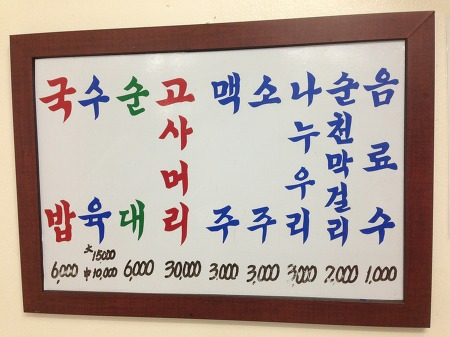 국밥 6,000
수육 大 15000 中 10,000
순대 6,000
고사머리 30,000
맥주 3,000
소주 3,000
나누우리 3,000
순천막걸리 2,000
음료수 1,000